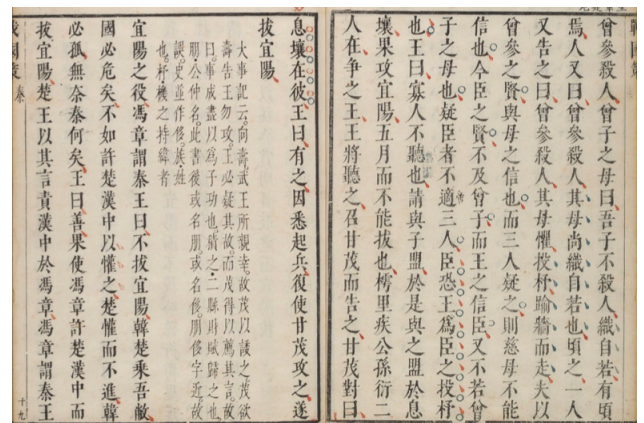 曾參殺人曾子之母曰吾子不殺人織自若有頃
焉人又曰曾參殺人其母尚織自若也頃之一人
又告之曰曾參殺人其母懼投杼踰牆而走夫以
曾參之賢與母之信也而三人疑之則慈母不能
信也今臣之賢不及曾子而王之信臣又不若曾
子之母也疑臣者不適三人臣恐王爲臣之投杼
也王曰寡人不聽也請與子盟於是與之盟於息
壤果攻宜陽五月而不能拔也樗里疾公孫衍二
人在爭之王王將聽之召甘茂而告之甘茂對曰
息壤在彼王曰有之因悉起兵復使甘茂攻之遂
拔宜陽
大事記云向壽武王所親幸故茂以
壽告王勿攻王必疑其故而茂得以薦其言故
曰事成盡以爲子功也
朋公仲名此書後或名朋或名
誤史並作侈
也杼機之持緯者
宜陽之役馮章謂秦王曰不拔宜陽韓楚乘吾敝
國必危矣不如許楚漢中以懽之楚懽而不進韓
必孤無奈秦何矣王曰善果使馮章許楚漢中而
拔宜陽楚王以其言責漢中於馮章馮章謂秦王
十九